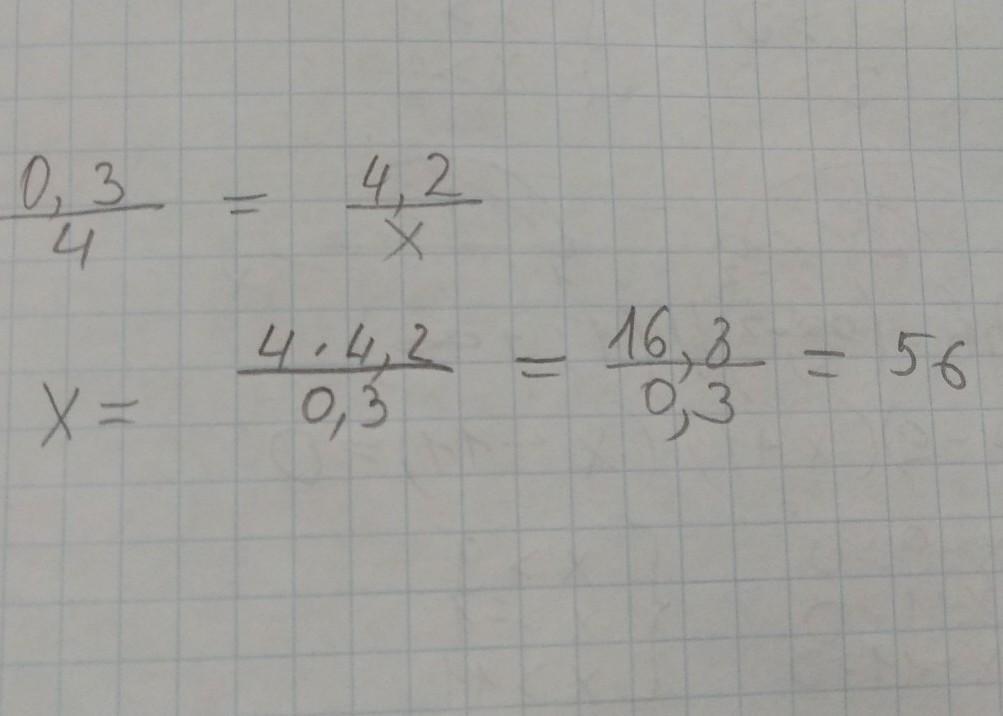 0,3/4 = 4,2/x
x = 4·4,2/0,3 = 16,8/0,3 = 56